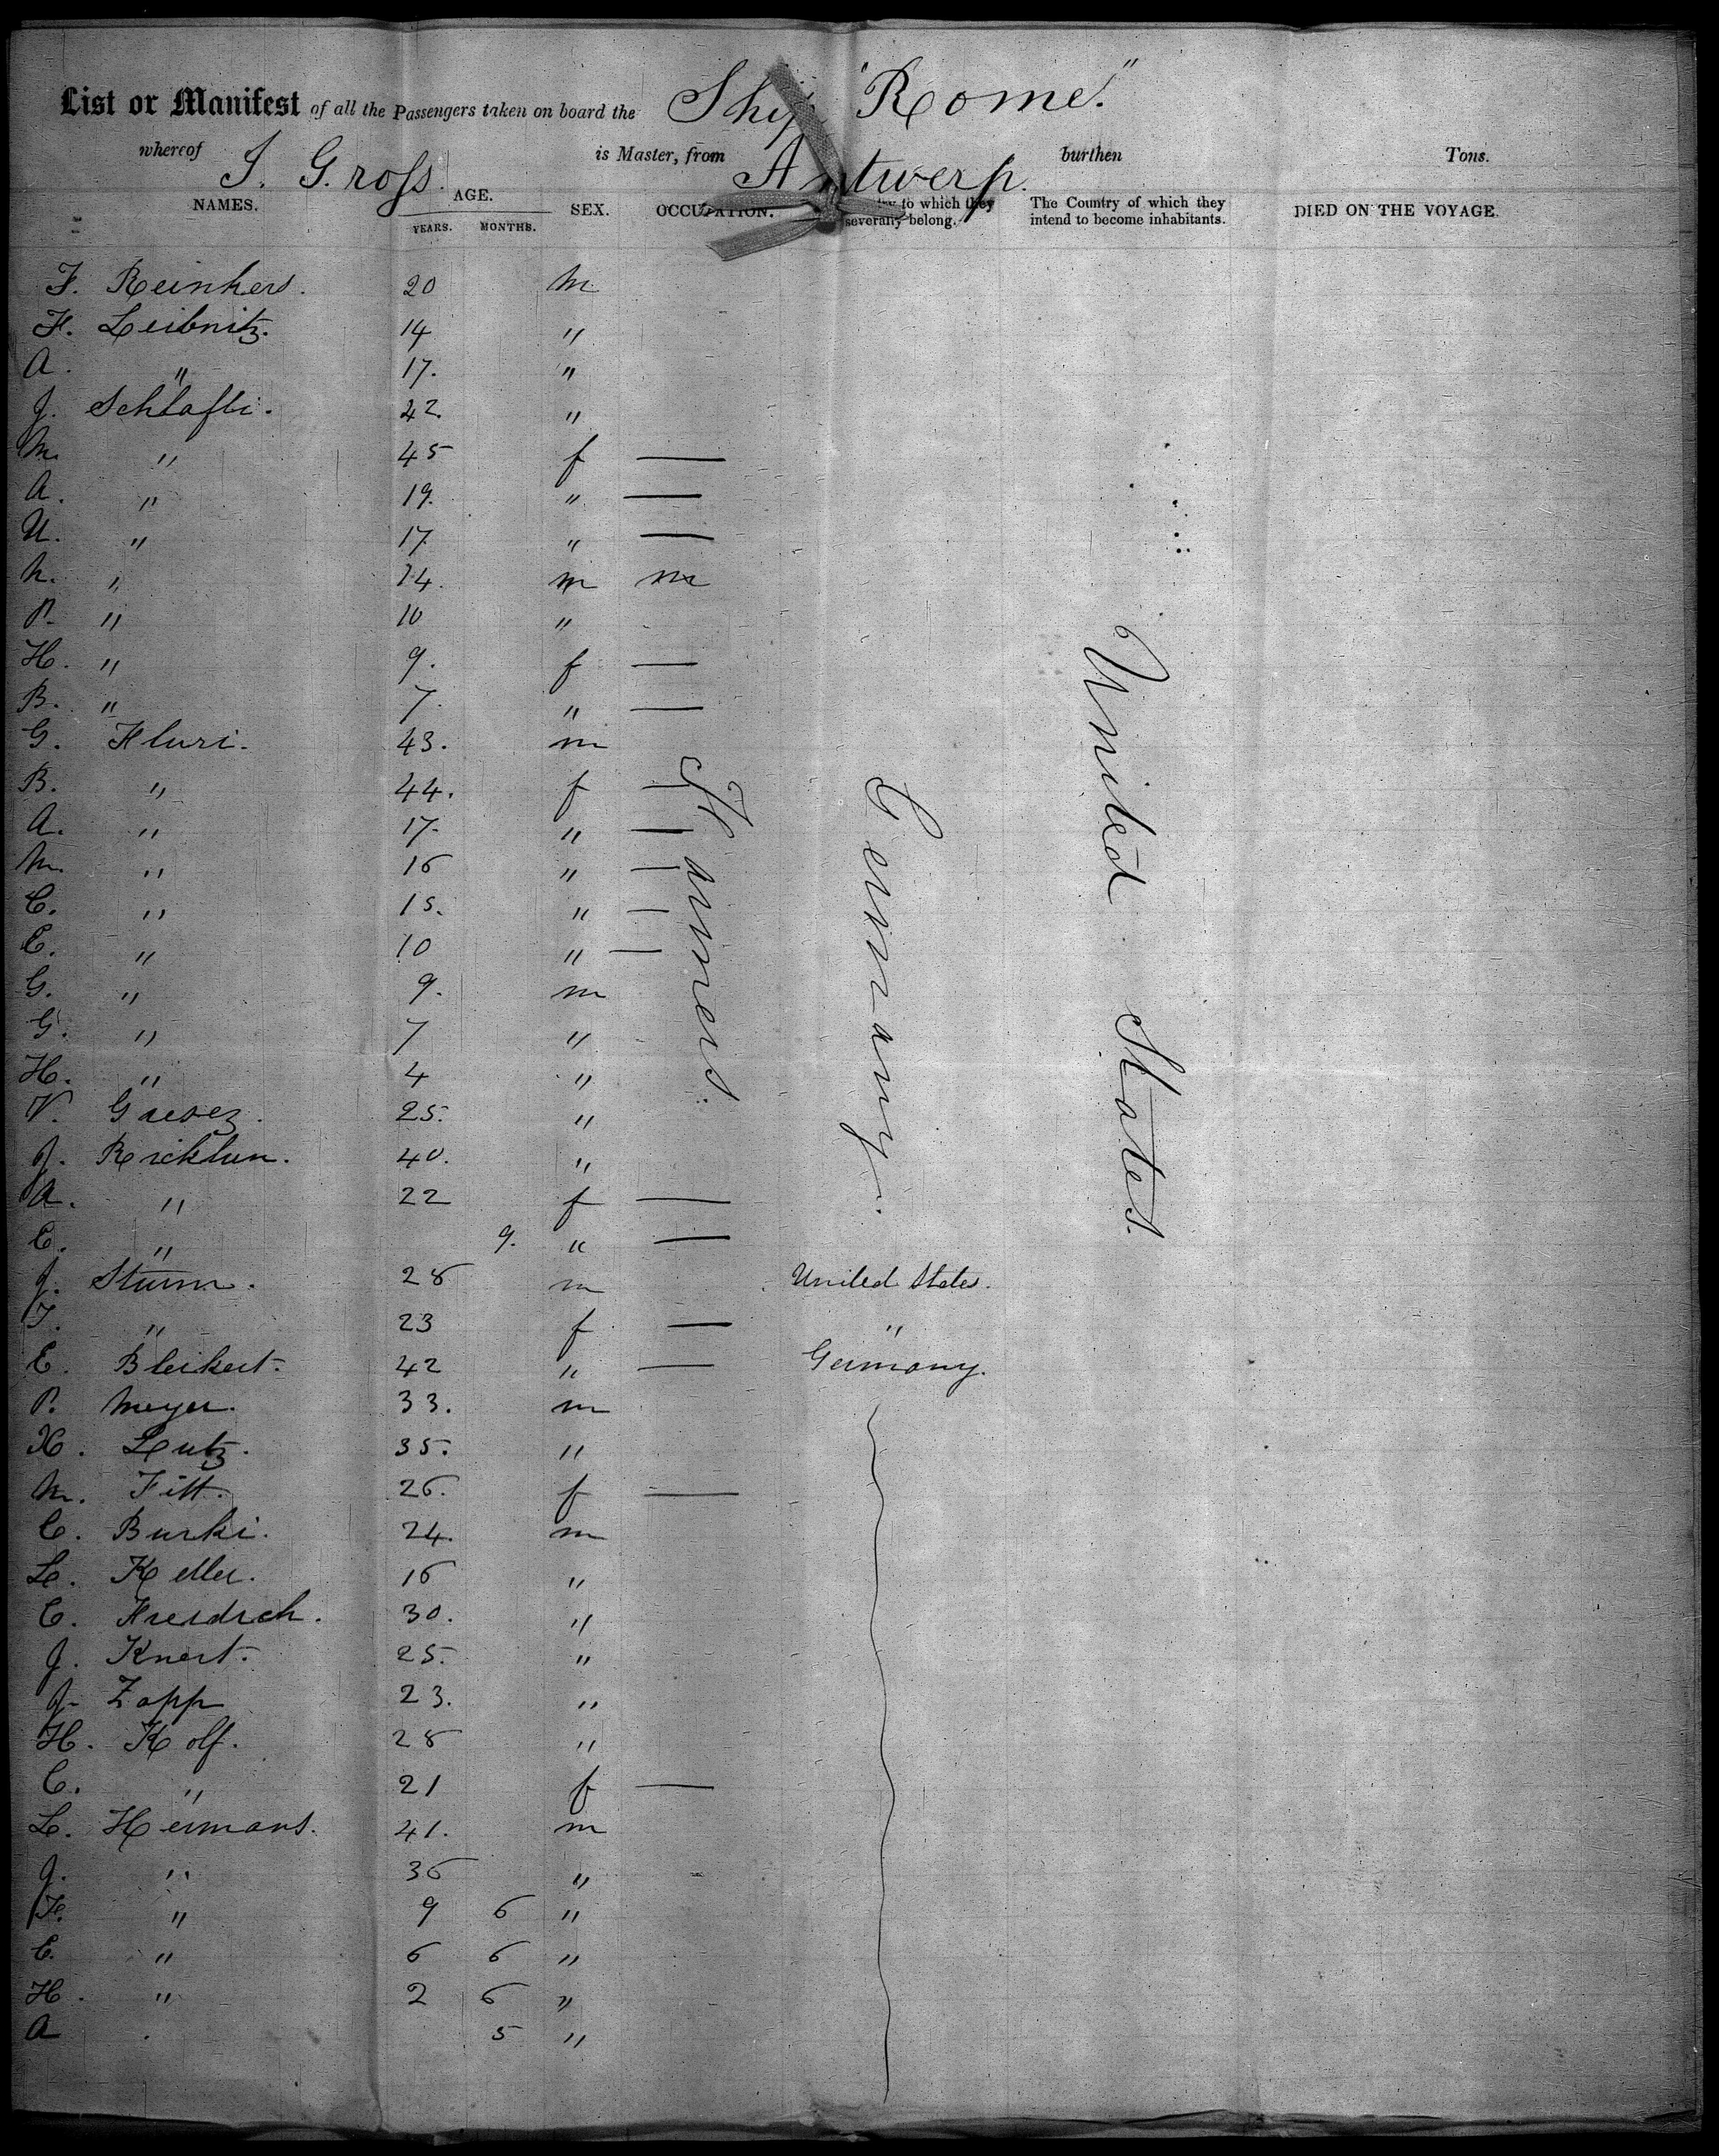 List or Manifest of all the Passengers taken on board the Ship "Rome."
whereof J. Gross. is Master, from Antwerp. burthen Tons.
NAMES. AGE. YEARS. MONTHS. SEX. OCCUPATION. to which they severally belong. The Country of which they intend to become inhabitants. DIED ON THE VOYAGE.
F. Reinhers. 20 m
F. Leibnitz. 14 "
A. " 17. "
J. Schlafli. 42. "
M. " 45 f —
A. " 19. " —
U. " 17 " —
N. " 14. m m
P. " 10 "
H. " 9. f —
B. " 7. " —
G. Fluri. 43. m
B. " 44. f —
A. " 17. " —
M. " 16 " —
C. " 15. " —
E. " 10 " —
G. " 9. m
G. " 7 "
H. " 4 "
V. 25. "
J. Ricklun. 40. "
A. " 22 f —
C. " 9. " —
J. Sturm. 28 m United States.
F. " 23 f — "
E. Bleikert. 42 " — Germany.
P. Meyer. 33. m
X. Lutz. 35. "
M. Fitt. 26. f —
C. Burki. 24. m
L. Keller. 16 "
C. Freidrich. 30. "
J. Knert. 25. "
J. Zapp 23. "
H. Kolf. 28 "
C. " 21 f —
L. Heimans. 41. m
J. " 36 "
F. " 9 6 "
E. " 6 6 "
H. " 2 6 "
A 5 "
Farmers.
Germany.
United States.